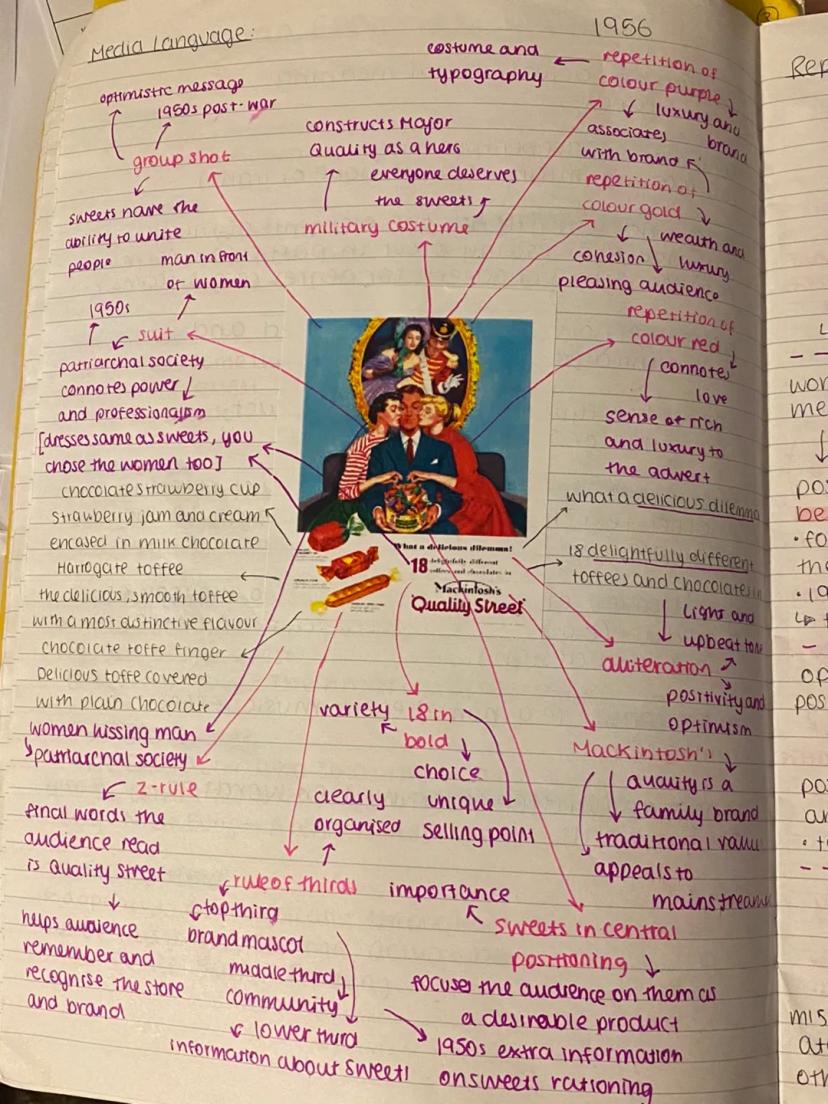 1956
Media Language:
costume and
typography
repetition of
colour purple
luxury and
brand
associates
with brand
optimistic message
1950s post-war
group shot
sweets have the
ability to unite
people
constructs Major
Quality as a hero
everyone deserves
the sweets
military costume
repetition of
colour gold
wealth and
luxury
cohesion
pleasing audience
man in front
of women
1950s
suit
patriarchal society
connotes power
and professionalism
[dresses same as sweets, you
chose the women too]
repetition of
colour red
connotes
love
sense of rich
and luxury to
the advert
chocolate strawberry cup
strawberry jam and cream
encased in milk chocolate
Harrogate toffee
the delicious, smooth toffee
with a most distinctive flavour
chocolate toffe finger
Delicious toffe covered
with plain chocolate
What a delicious dilemma!
18 delightfully different
toffees and chocolates in
Mackintosh's
Quality Street
what a delicious dilemma
18 delightfully different
toffees and chocolates in
light and
upbeat tone
alliteration
positivity and
optimism
women kissing man
patriarchal society
z-rule
final words the
audience read
is Quality Street
helps audience
remember and
recognise the store
and brand
variety
18 in
bold
choice
unique
selling point
clearly
organised
rule of thirds
top third
brand mascot
middle third
community
lower third
information about sweets
Mackintosh's
quality is a
family brand
traditional value
appeals to
mainstream
importance
sweets in central
positioning
focuses the audience on them as
a desirable product
1950s extra information
on sweets rationing
Rep
wor
me
pos
be
• fo
the
• 19
op
pos
po
ar
• t
mis
at
oth